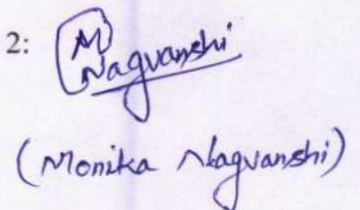 2: M
Nagvanshi
(Monika Nagvanshi)